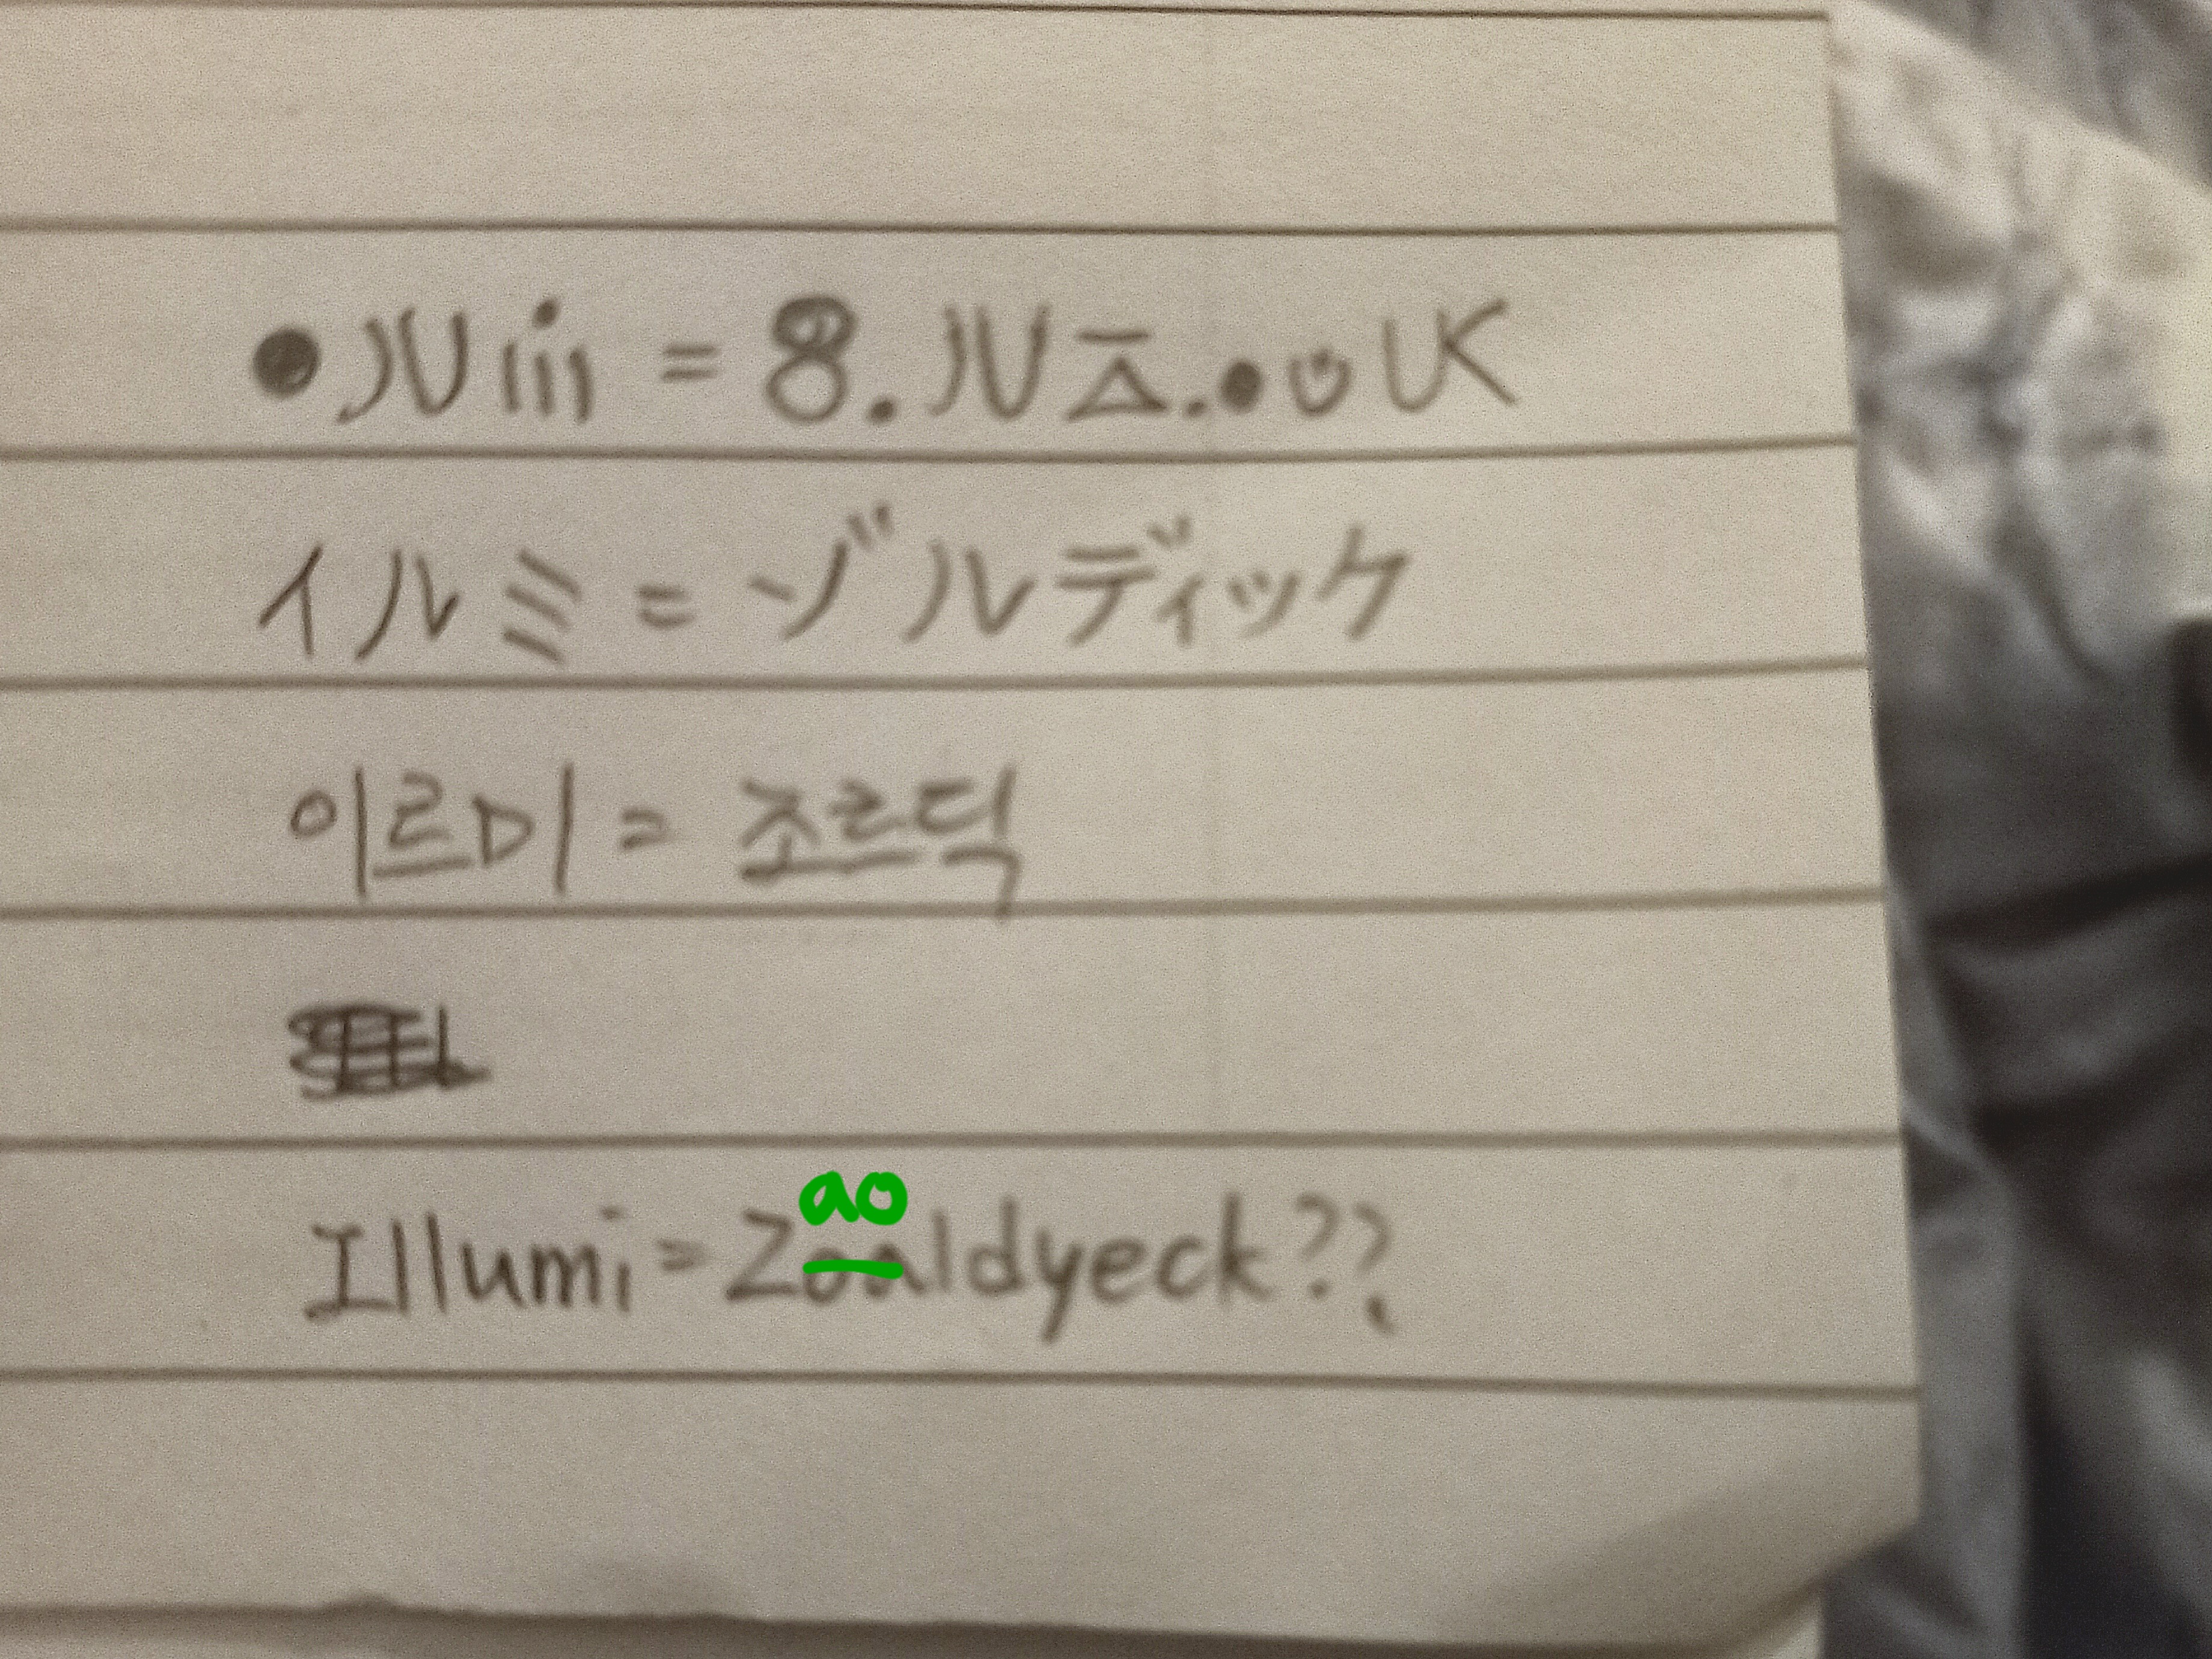 イルミ=ゾルディッケ
이르미=조르딕
ao
Illumi=Zoaldyeck??